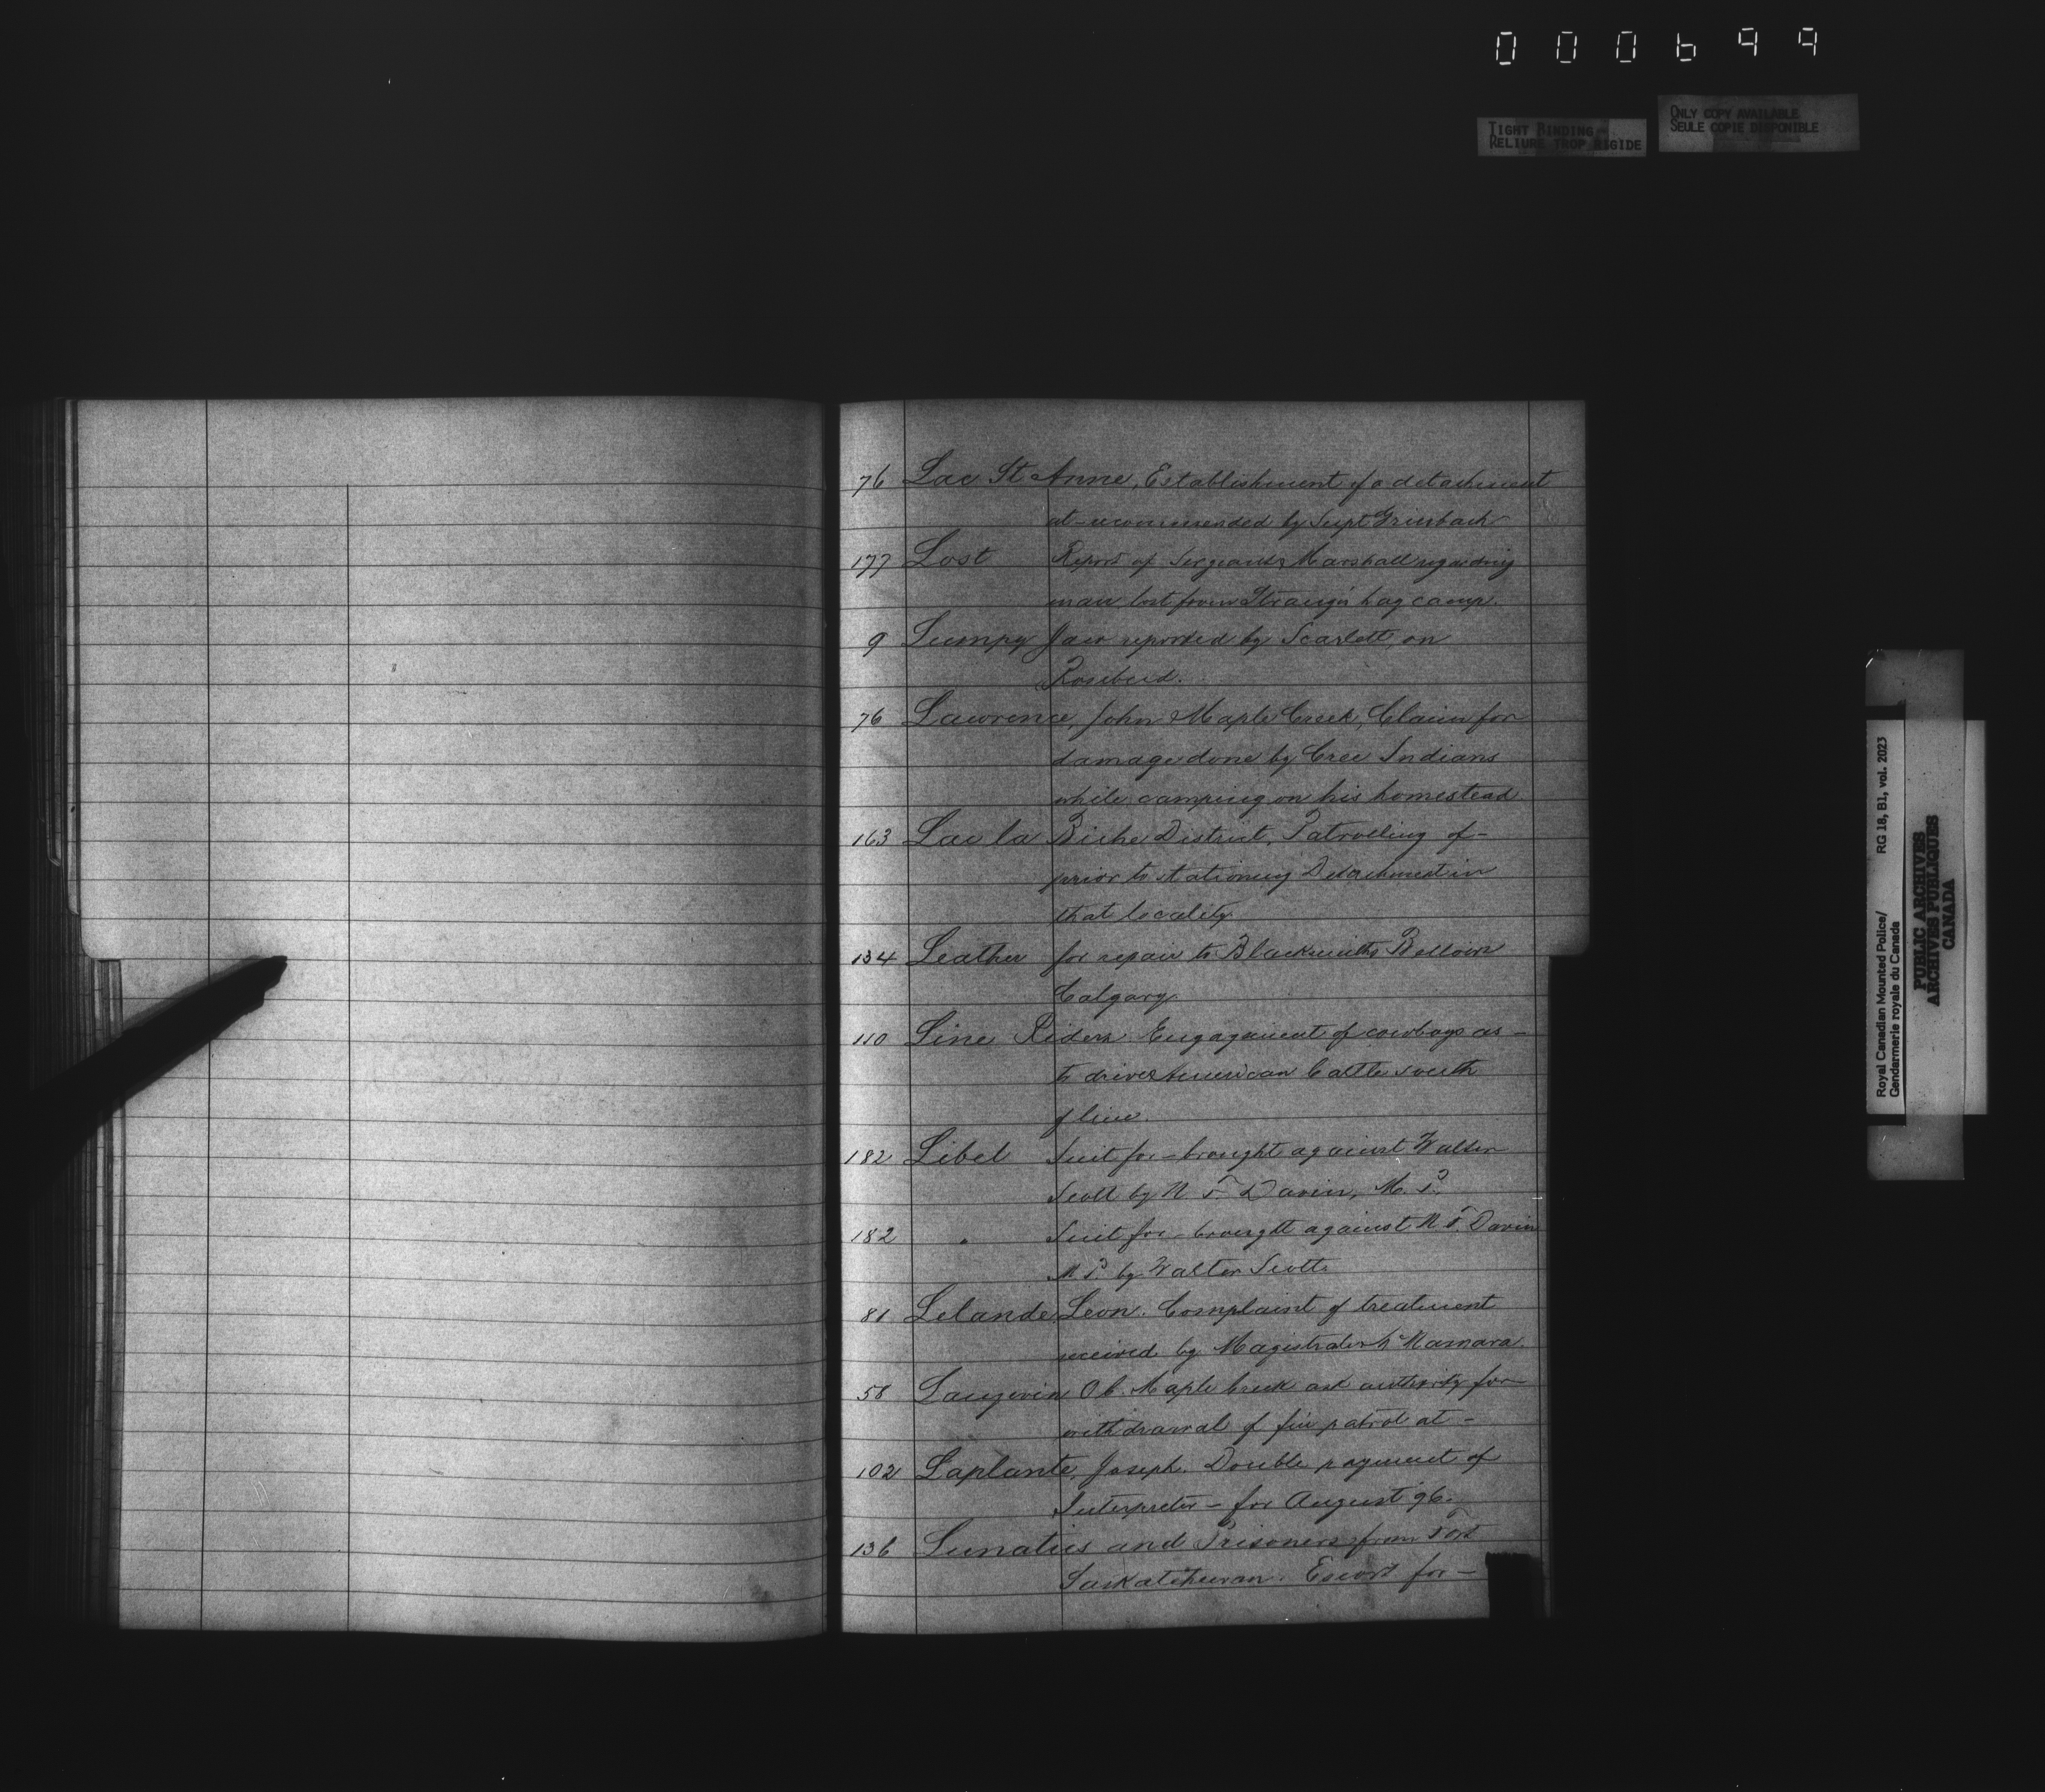 000699
TIGHT BINDING
RELIURE TROP RIGIDE
ONLY COPY AVAILABLE
SEULE COPIE DISPONIBLE
76 Lac St Anne, Establishment of a detachment
at - recommended by Supt Griesbach
177 Lost Report of Sergeant Marshall regarding
man lost from Strange's hay camp.
9 Lumpy Jaw reported by Scarlett, on
Rosebud.
76 Lawrence, John Maple Creek, Claim for
damage done by Cree Indians
while camping on his homestead
163 Lac la Biche District, Patrolling of -
prior to stationing Detachment in
that locality.
134 Leather for repair to Blacksmiths Bellows
Calgary
110 Line Riders Engagament of cowboys as -
to drive American Cattle south
of line.
182 Libel Suit for - brought against Walter
Scott by N. F. Davin, M. P.
182 " Suit for - brought against N. F. Davin
M P. by Walter Scott.
81 Lelande, Leon. Complaint of treatment
received by Magistrate McNamara.
58 Langevin O.C. Maple Creek ask authority for
withdrawal of fire patrol at -
102 Laplante, Joseph. Double payment of
Interpreter - for August 96.
136 Lunatics and Prisoners from Fort
Saskatchewan. Escort for -
Royal Canadian Mounted Police/
Gendarmerie royale du Canada
RG 18, B1, vol. 2023
PUBLIC ARCHIVES
ARCHIVES PUBLIQUES
CANADA